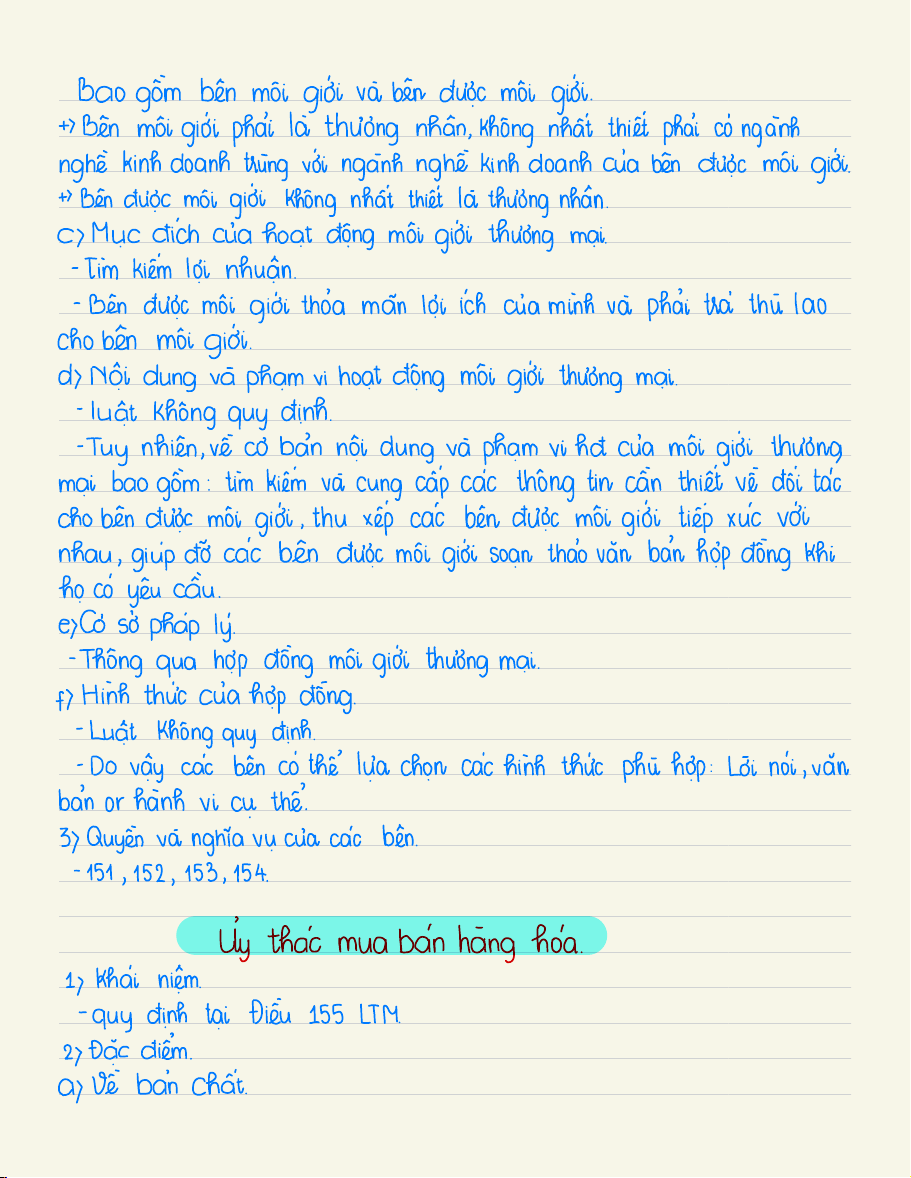 Bao gồm bên môi giới và bên được môi giới.
+> Bên môi giới phải là thương nhân, không nhất thiết phải có ngành
nghề kinh doanh trùng với ngành nghề kinh doanh của bên được môi giới.
+> Bên được môi giới không nhất thiết là thương nhân.
c> Mục đích của hoạt động môi giới thương mại.
- Tìm kiếm lợi nhuận.
- Bên được môi giới thỏa mãn lợi ích của mình và phải trả thù lao
cho bên môi giới.
d> Nội dung và phạm vi hoạt động môi giới thương mại.
- luật không quy định.
- Tuy nhiên, về cơ bản nội dung và phạm vi hđ của môi giới thương
mại bao gồm: tìm kiếm và cung cấp các thông tin cần thiết về đối tác
cho bên được môi giới, thu xếp các bên được môi giới tiếp xúc với
nhau, giúp đỡ các bên được môi giới soạn thảo văn bản hợp đồng khi
họ có yêu cầu.
e> Cơ sở pháp lý.
- Thông qua hợp đồng môi giới thương mại.
f> Hình thức của hợp đồng.
- Luật không quy định.
- Do vậy các bên có thể lựa chọn các hình thức phù hợp: Lời nói, văn
bản or hành vi cụ thể.
3> Quyền và nghĩa vụ của các bên.
- 151, 152, 153, 154.
Ủy thác mua bán hàng hóa.
1> Khái niệm.
- quy định tại Điều 155 LTM.
2> Đặc điểm.
a> Về bản chất.